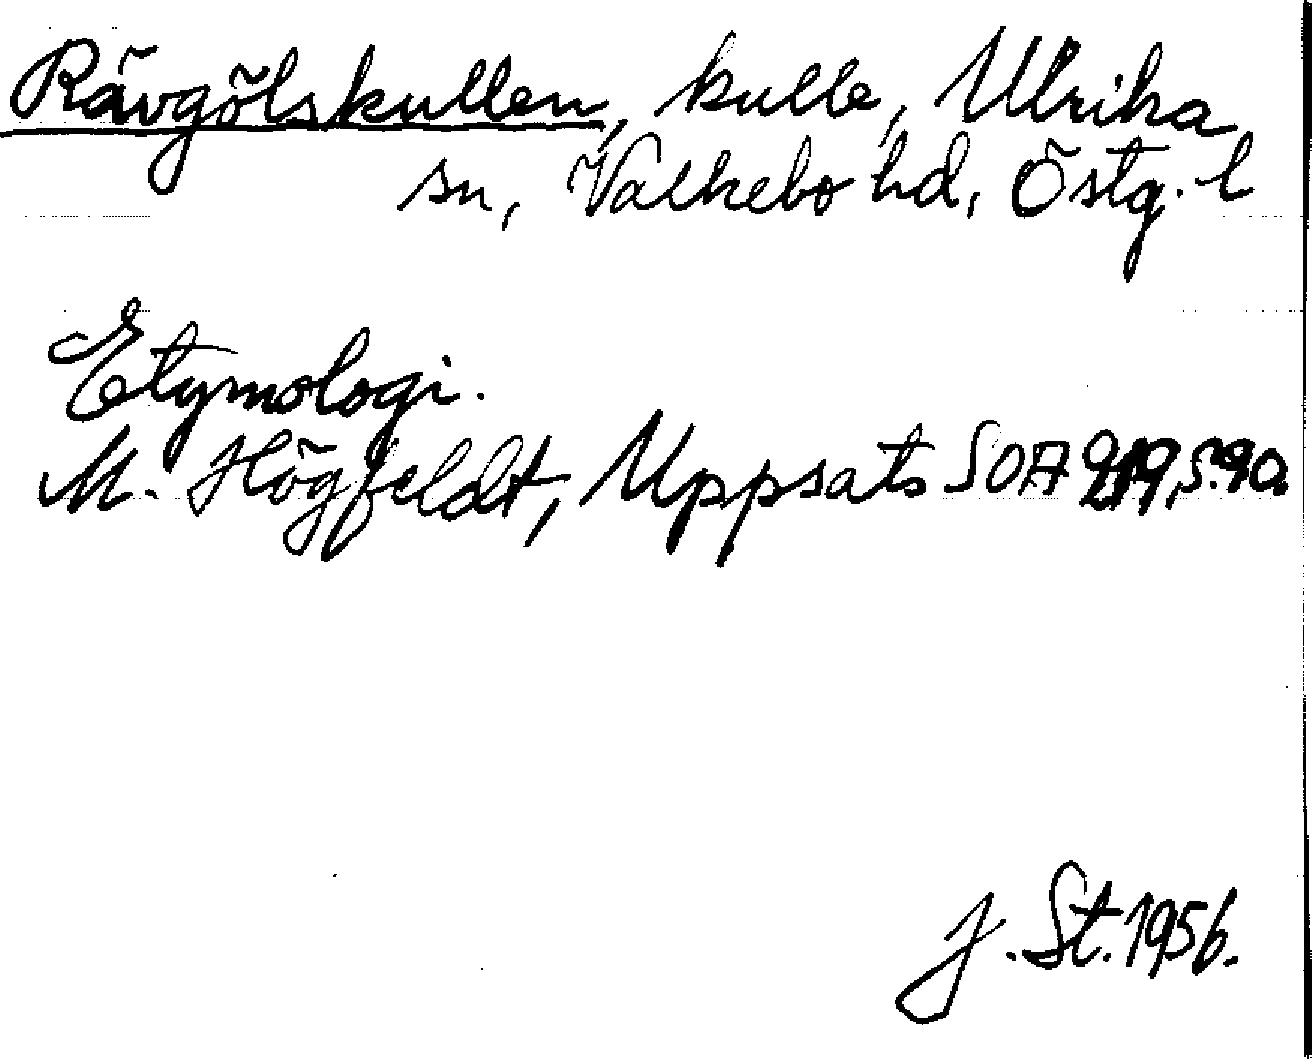 Rävgölskullen, kulle, Ulrika
sn, Valkebo hd, Östg. l
Etymologi.
M. Högfeldt, Uppsats SOA 219, s. 90.
J. St. 1956.